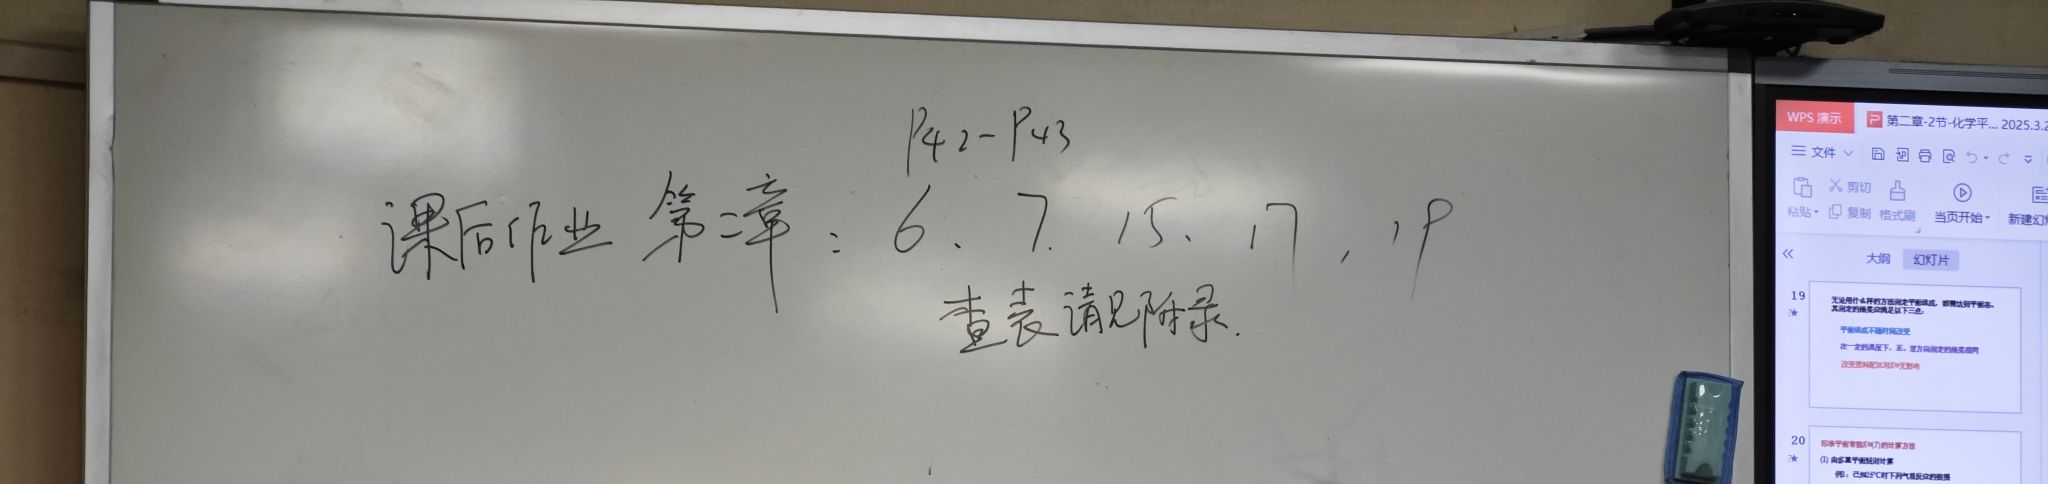 P42-P43
课后作业 第二章: 6、7. 15、17, 19
查表请见附录.
WPS 演示
第二章-2节-化学平... 2025.3.2
文件
剪切
粘贴 复制 格式刷 当页开始 新建幻
大纲 幻灯片
19
无论用什么样的方法测定平衡组成，都需达到平衡态，
其测定的结果应满足以下三点:
平衡组成不随时间改变
在一定的温度下，正、逆方向测定的结果相同
改变原料配比对K无影响
20
标准平衡常数K(T)的计算方法
(1) 由多重平衡规则计算
例1: 已知25°C时下列气相反应的数据